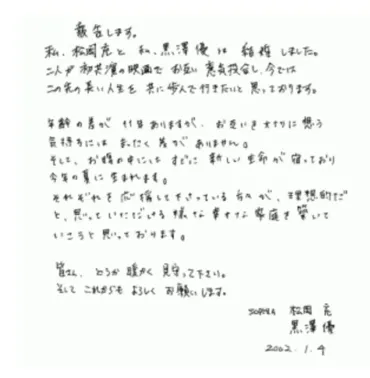 報告します。
私、松岡充と 私、黒澤優は 結婚しました。
二人が初共演の映画でお互い意気投合し、今では
この先の長い人生を 共に歩んで行きたいと思っております。
年齢の差が 11才ありますが、お互いを大切に想う
気持ちには まったく差がありません。
そして、お腹の中には すでに 新しい生命が宿っており
今年の夏に生まれます。
それぞれを応援して下さっている方々が、理想的だ
と、思っていただける様な幸せな家庭を築いて
いこうと思っております。
皆さん、どうか暖かく見守って下さい。
そして これからも よろしく お願いします。
SOPHIA 松岡 充
黒澤 優
2002.1.4